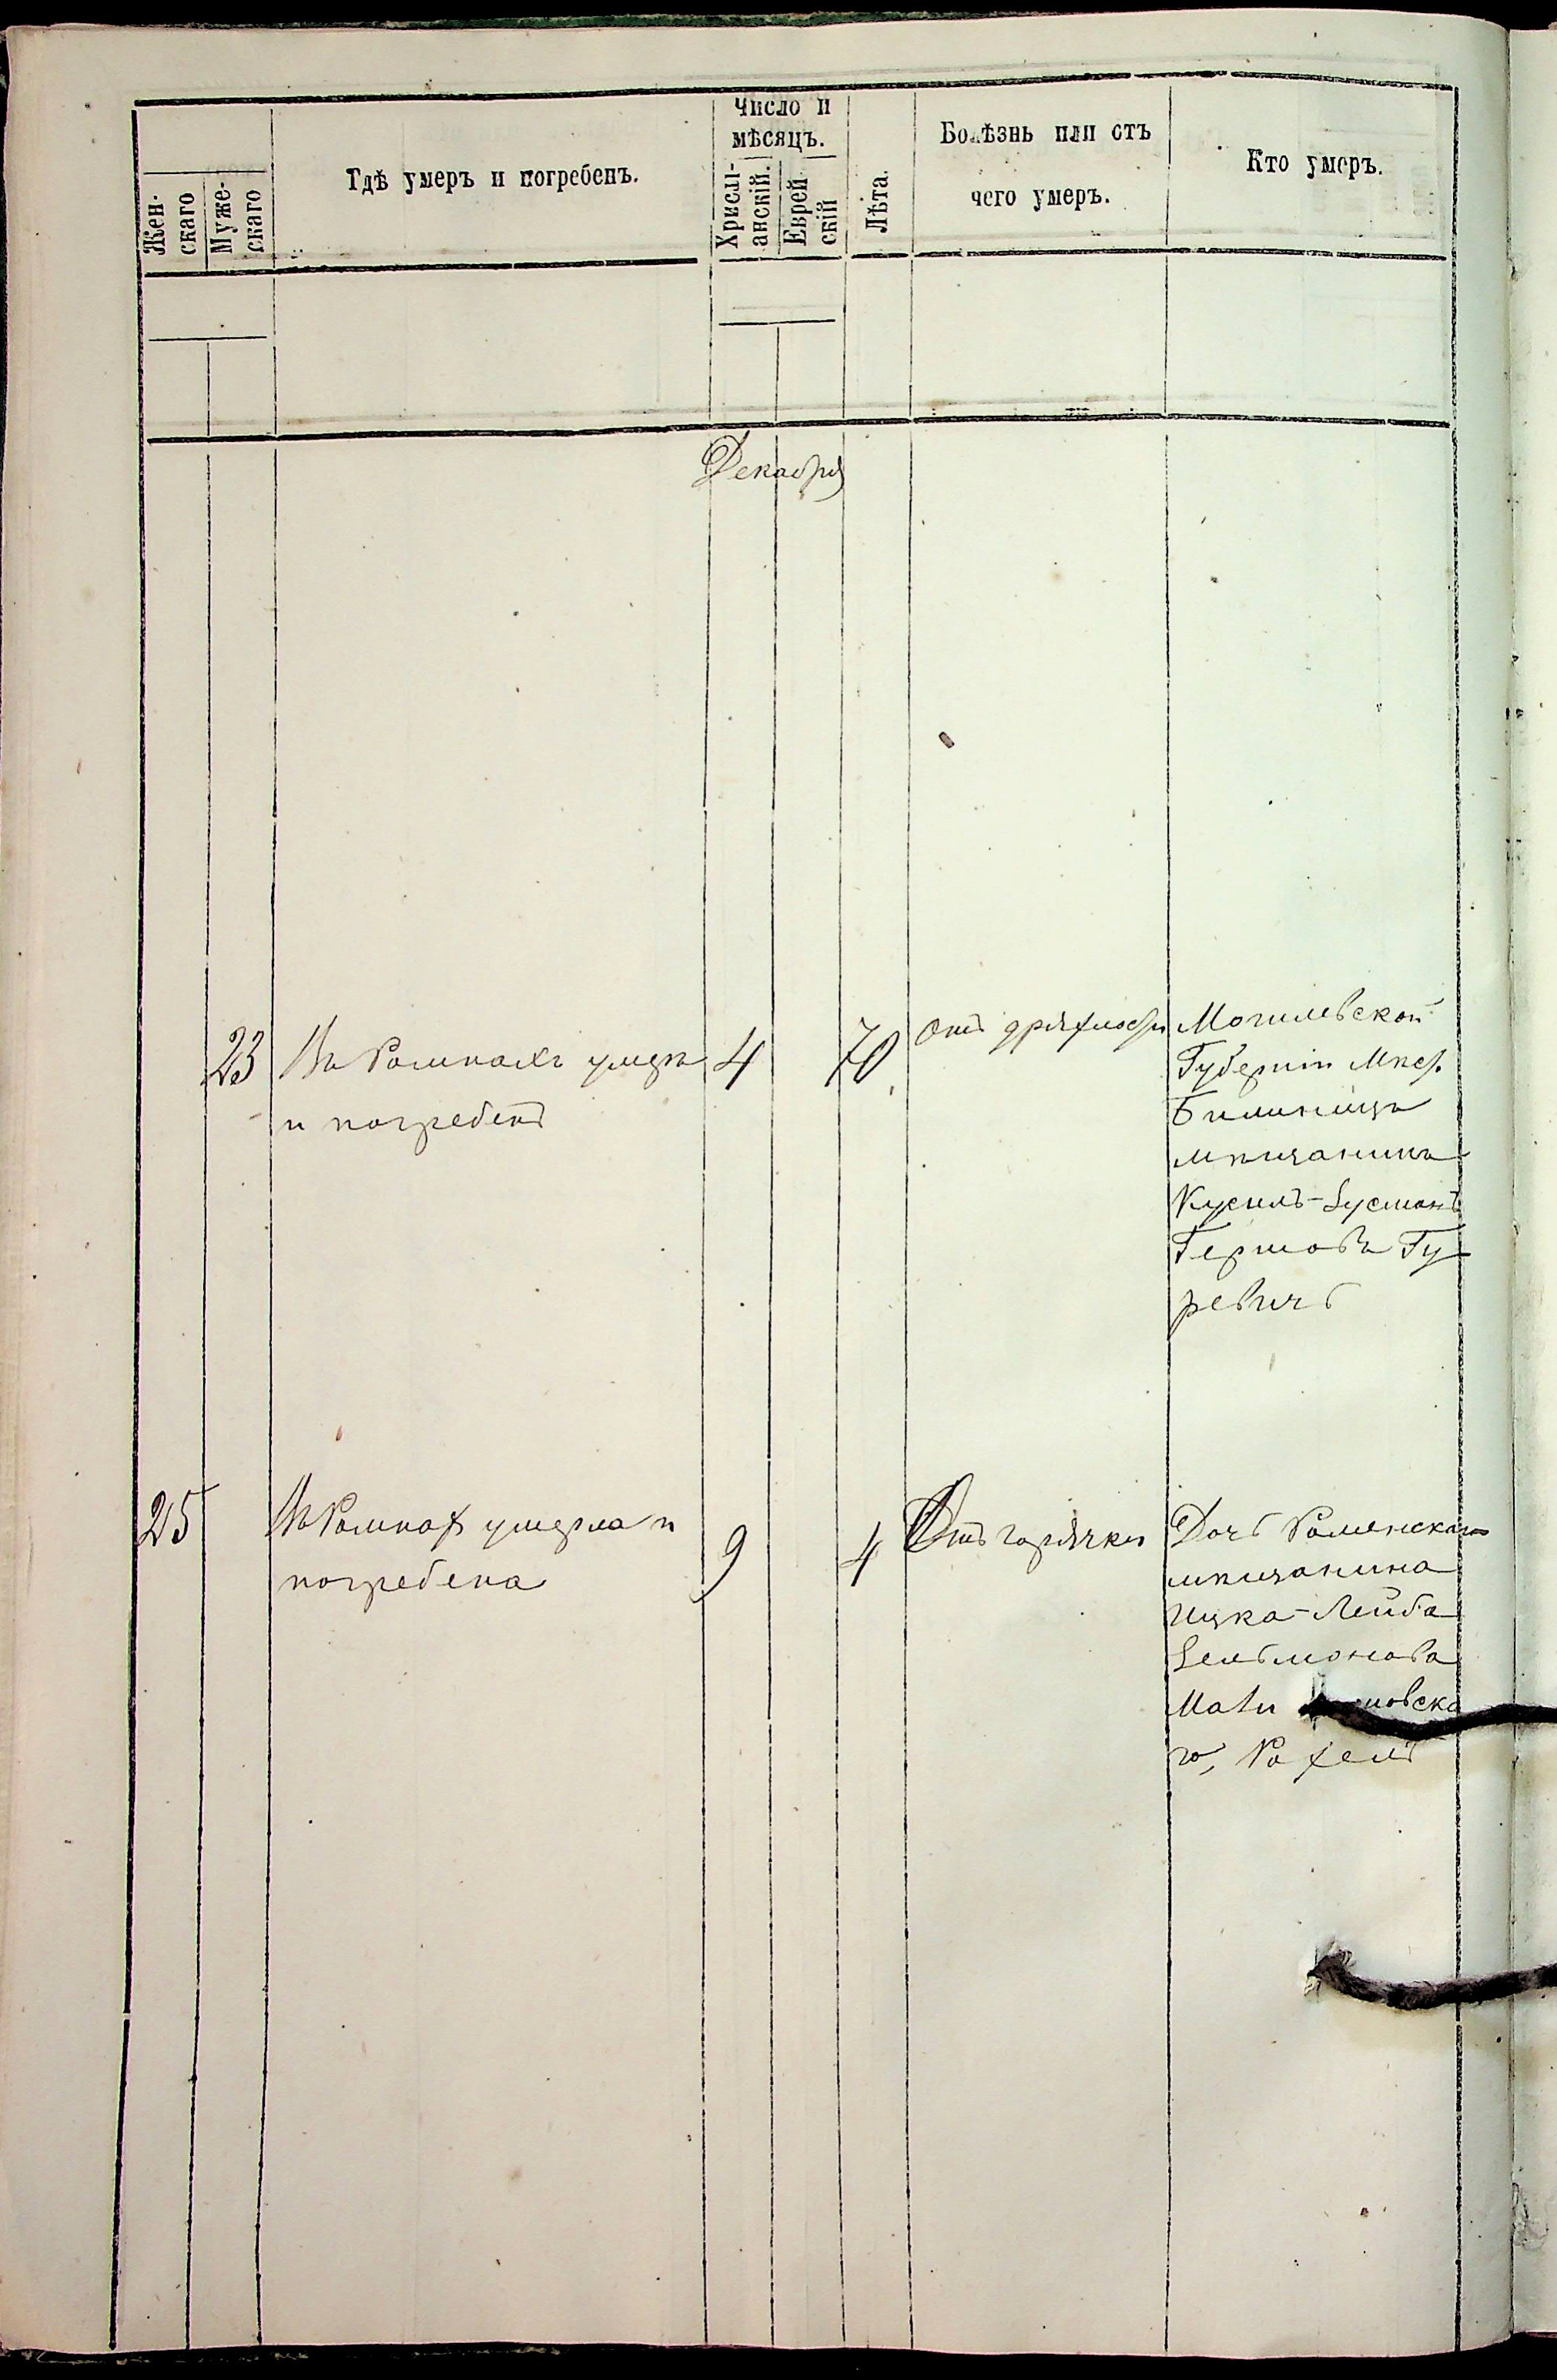 Жен-
скаго
Муже-
скаго
Гдѣ умеръ и погребенъ.
Число и
мѣсяцъ.
Христі-
анскій.
Еврей
скій
Лѣта
Болѣзнь или отъ
чего умеръ.
Кто умеръ.
Декабря
23
Въ Ромнахъ умеръ
и погребенъ
4
70
отъ дряхлости
Могилевской
Губерніи Мѣст.
мѣщанинъ
Кусиль-Зусманъ
Гершовъ Гу
ревичъ
25
Въ Ромнах умерла и
погребена
9
4
Отъ горячки
Дочь Роменскаго
мѣщанина
Ицка-Лейба
Зельманова
го, Рахель